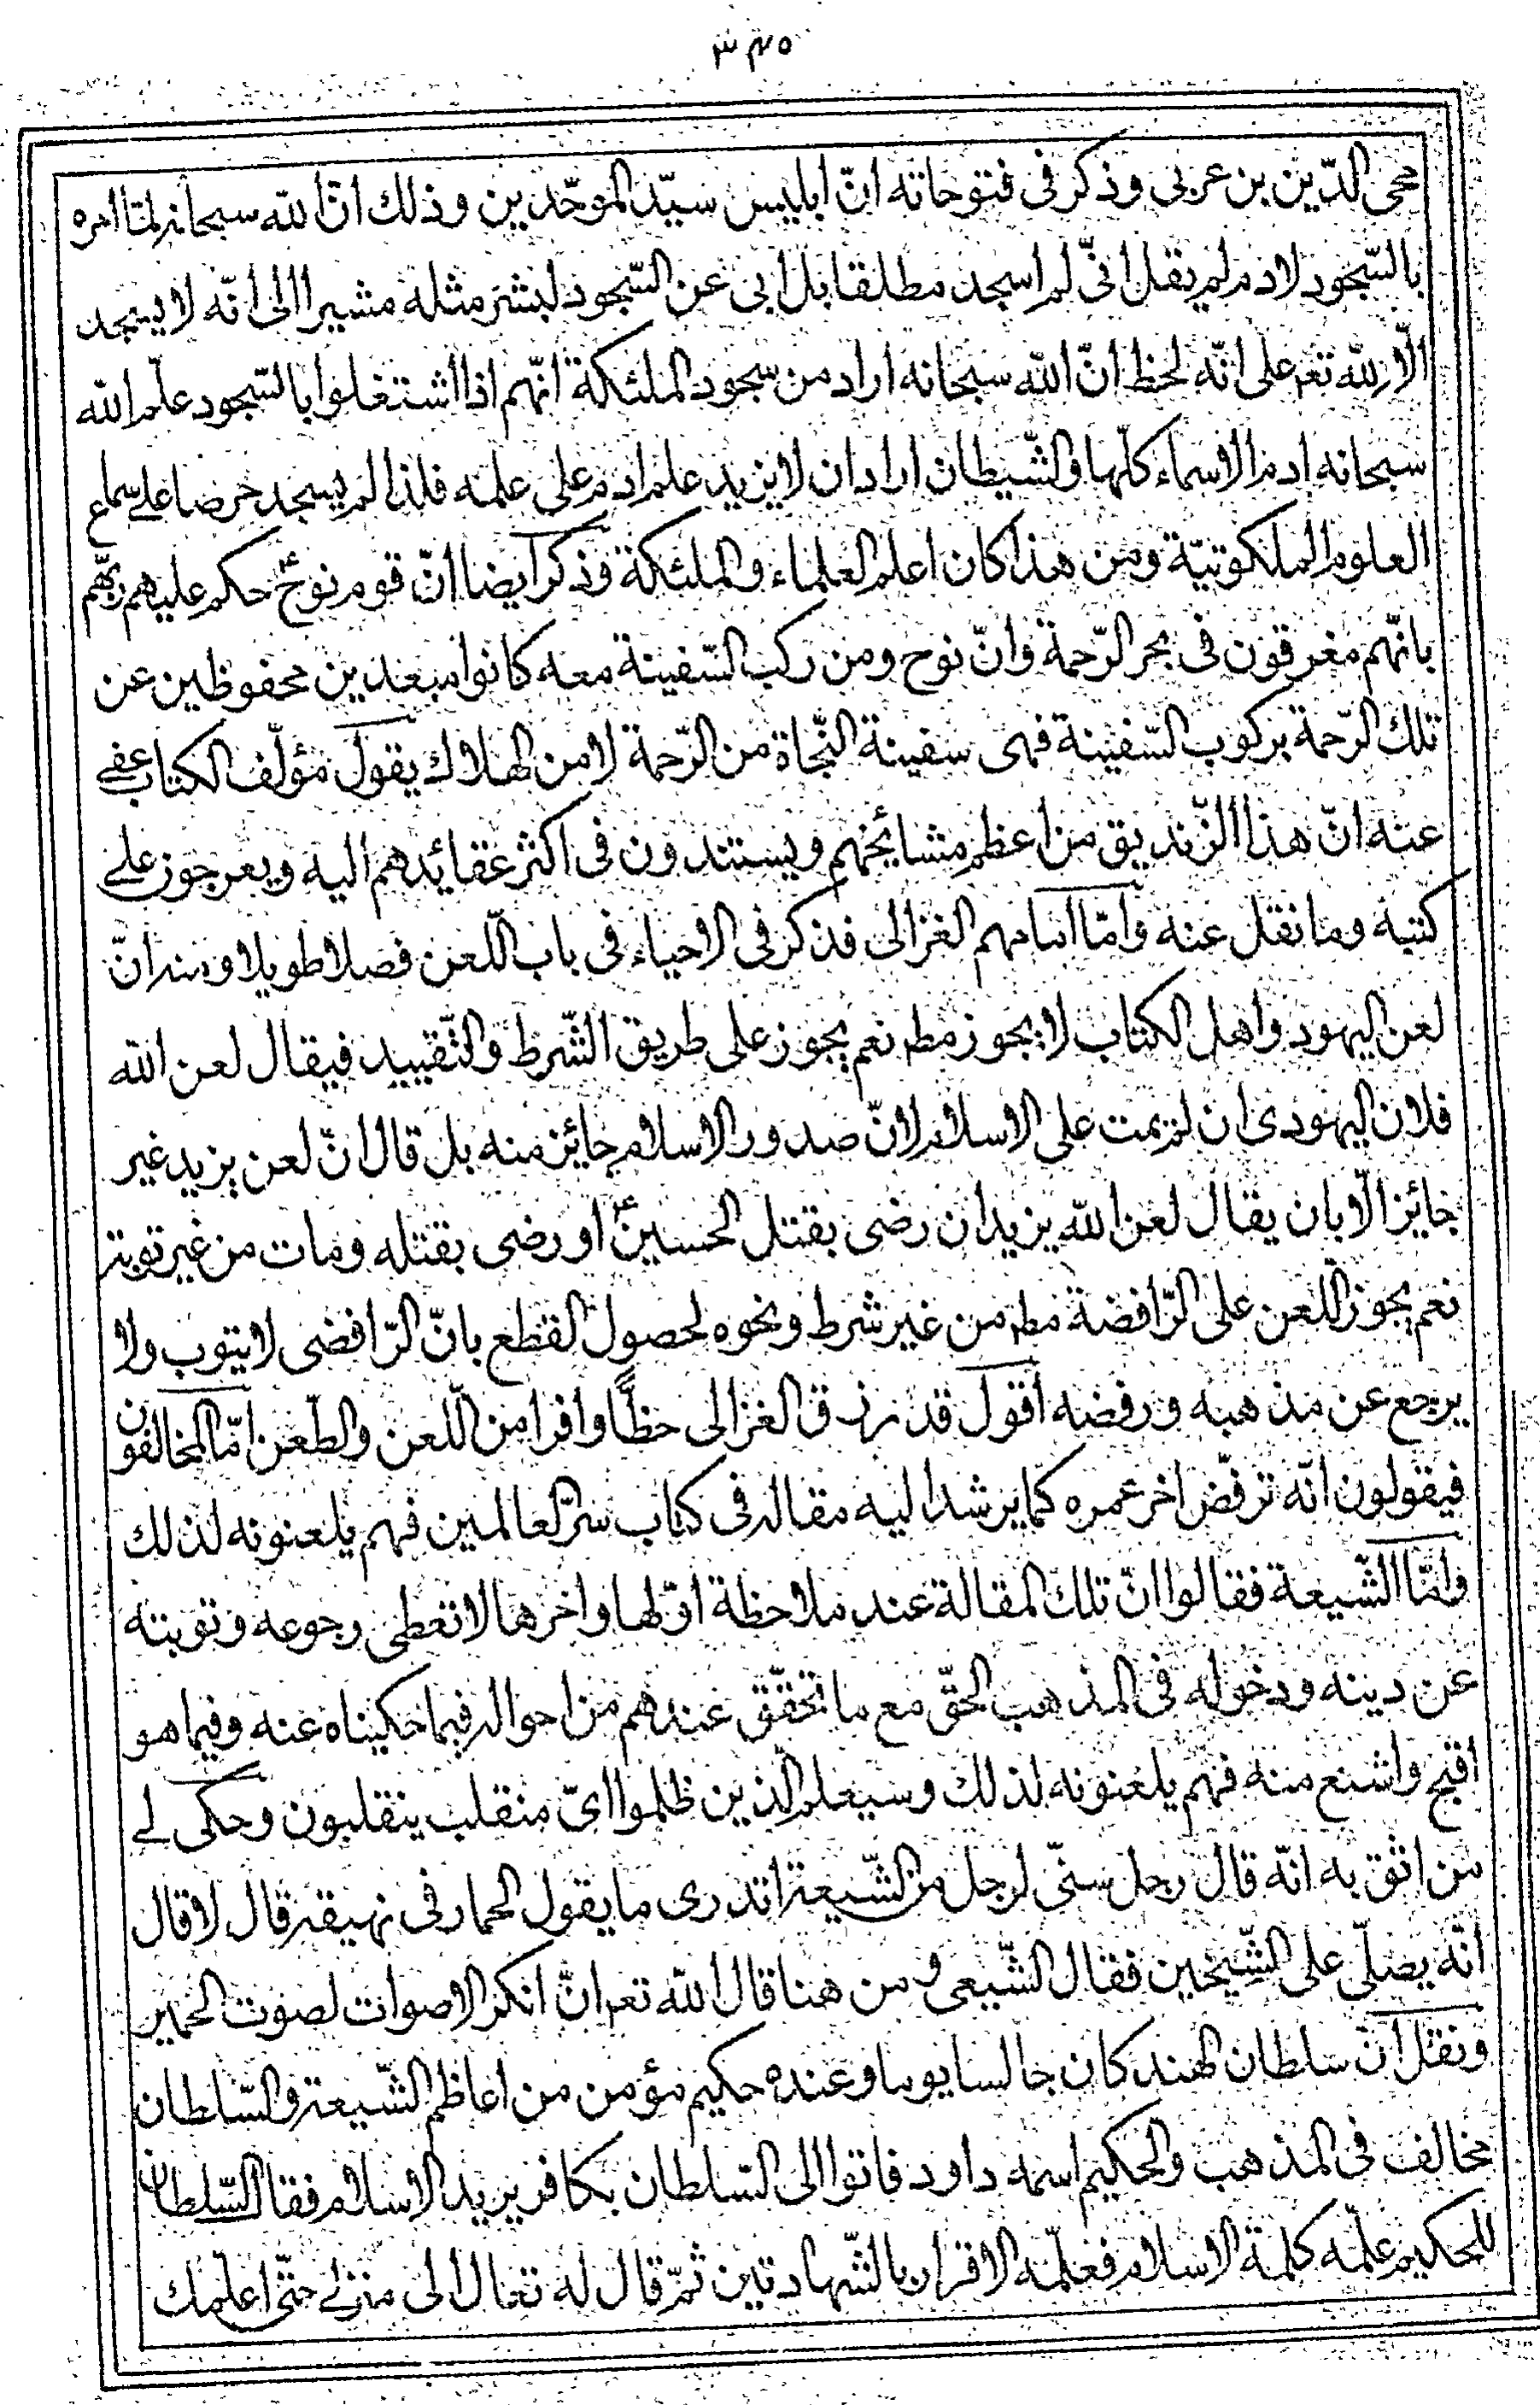 ٣٤٥
محى الدّين بن عربى وذكر فى فتوحاته انّ ابليس سيّد الموّحدين وذلك انّ الله سبحانه لمّا امره
بالسّجود لادم لم يقل انّى لم اسجد مطلقا بل ابى عن السّجود لبشر مثله مشيرا الى انّه لا يسجد
الّا لله تعر على انّه لحظ انّ الله سبحانه اراد من سجود الملئكة انّهم اذا اشتغلوا بالسّجود علّم الله
سبحانه ادم الاسماء كلّها والشّيطان اراد ان لا يزيد علم ادم على علمه فلذا لم يسجد حرصا على سماع
العلوم الملكوتيّة ومن هذا كان اعلم العلماء والملئكة وذكر ايضا انّ قوم نوحؑ حكم عليهم ربّهم
بانّهم مغرقون فى بحر الرّحمة وانّ نوح ومن ركب السّفينة معه كانوا مبعدين محفوظين عن
تلك الرّحمة بركوب السّفينة فهى سفينة النّجاة من الرّحمة لا من الهلاك يقول مؤلّف الكتاب عفى
عنه انّ هذا الزّنديق من اعظم مشائخهم ويستندون فى اكثر عقائدهم اليه ويعرجوز على
كتبه وما نقل عنه وامّا امامهم الغزالى فذكر فى الاحياء فى باب اللّعن فصلا طويلا ومنه انّ
لعن اليهود واهل الكتاب لا يجوز مطر نعم يجوز على طريق الشّرط والتّقييد فيقال لعن الله
فلان اليهودى ان لم يمت على الاسلام لانّ صدور الاسلام جائز منه بل قال انّ لعن يزيد غير
جائز الّا بان يقال لعن الله يزيد ان رضى بقتل الحسينؑ او رضى بقتله ومات من غير توبته
نعم يجوز اللّعن على الرّافضة مطر من غير شرط ونحوه لحصول القطع بانّ الرّافضى لا يتوب ولا
يرجع عن مذهبه ورفضه اقول قد رزق الغزالى حظّا وافرا من اللّعن والطّعن امّا المخالفون
فيقولون انّه ترفّض اخر عمره كما يرشد اليه مقاله فى كتاب سرّ العالمين فهم يلعنونه لذلك
وامّا الشّيعة فقالوا انّ تلك المقالة عند ملاحظة اوّلها واخرها لا تعطى رجوعه وتوبته
عن دينه ودخوله فى المذهب الحقّ مع ما تحقّق عندهم من احواله فيما حكيناه عنه وفيما هو
اقبح واشنع منه فهم يلعنونه لذلك وسيعلم الّذين ظلموا اىّ منقلب ينقلبون وحكى لى
من اثق به انّه قال رجل سنّى لرجل من الشّيعة اتدرى ما يقول الحمار فى نهيقه قال لا قال
انّه يصلّى على الشّيخين فقال الشّيعى ومن هنا قال الله تعر انّ انكر الاصوات لصوت الحمير
ونقل انّ سلطان الهند كان جالسا يوما وعنده حكيم مؤمن من اعاظم الشّيعة والسّلطان
مخالف فى المذهب والحكيم اسمه داود فاتوا الى السّلطان بكافر يريد الاسلام فقال السّلطان
للحكيم علّمه كلمة الاسلام فعلّمه الاقرار بالشّهادتين ثمّ قال له تعال الى منزلى حتّى اعلّمك